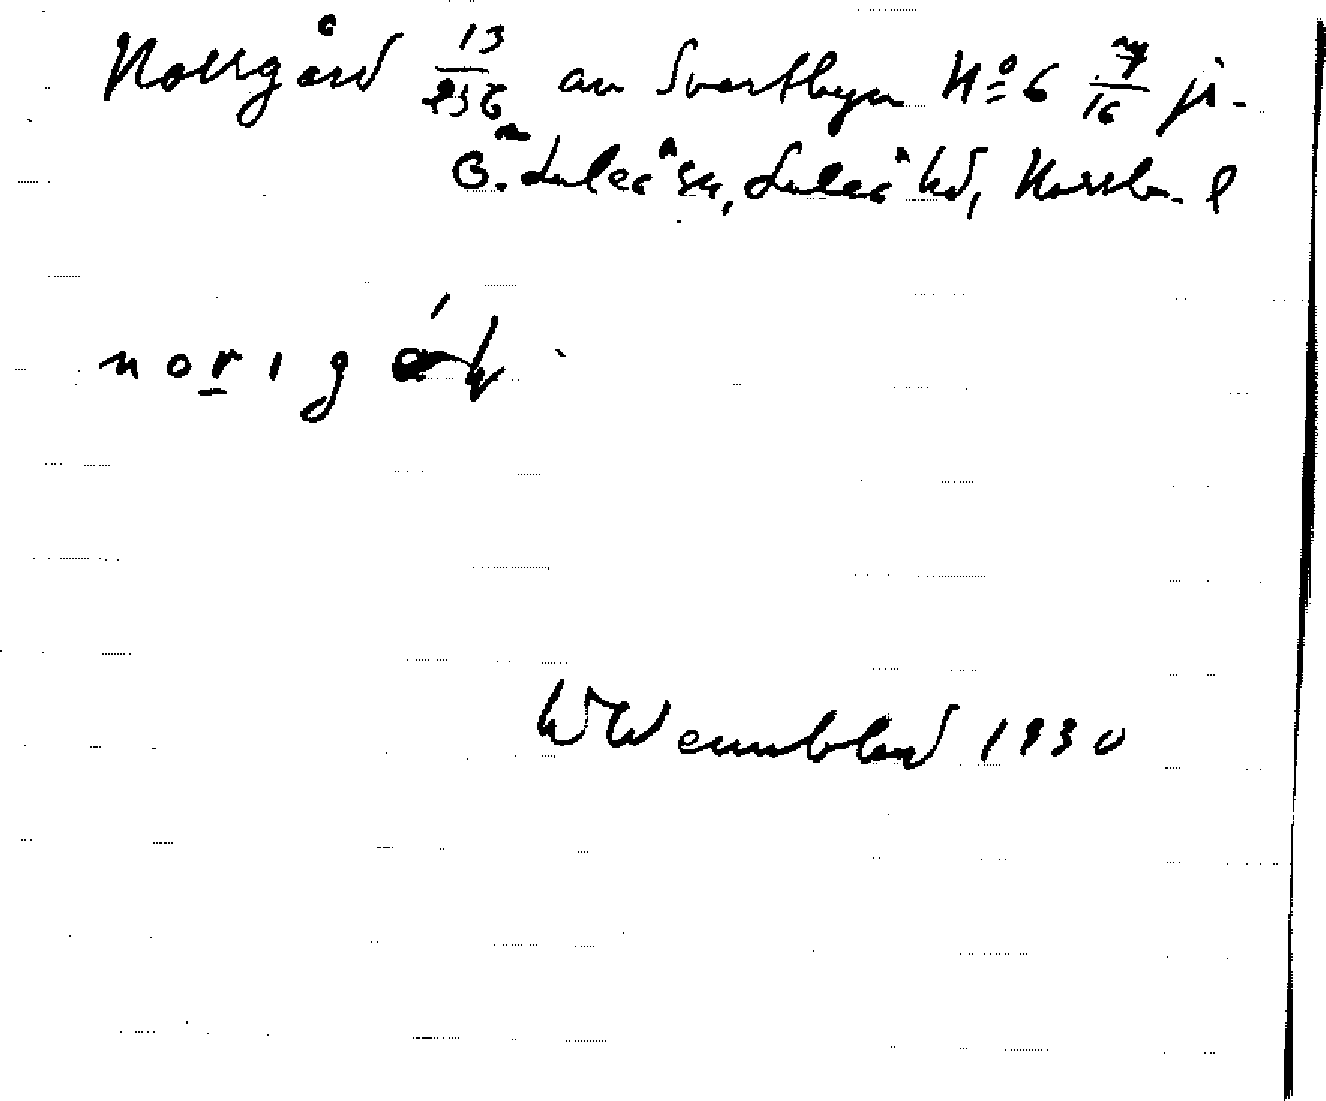 Norrgård 13/256 av Svartbyn Nº 6 7/16 ji.
Ö. Luleå sn, Luleå hd, Norrb. l
W Wennblad 1930